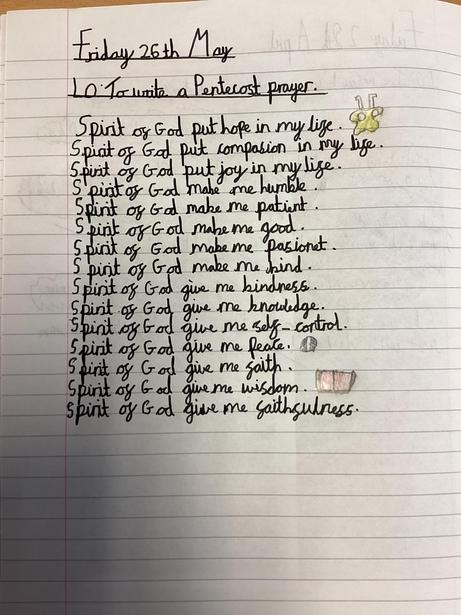 Friday 26th May
LO: To write a Pentecost prayer.
Spirit of God put hope in my life.
Spirit of God put compasion in my life.
Spirit of God put joy in my life.
Spirit of God make me humble.
Spirit of God make me patiunt.
Spirit of God make me good.
Spirit of God make me pasionet.
Spirit of God make me kind.
Spirit of God give me kindness.
Spirit of God give me knowledge.
Spirit of God give me self-control.
Spirit of God give me peace.
Spirit of God give me faith.
Spirit of God give me wisdom.
Spirit of God give me faithfulness.